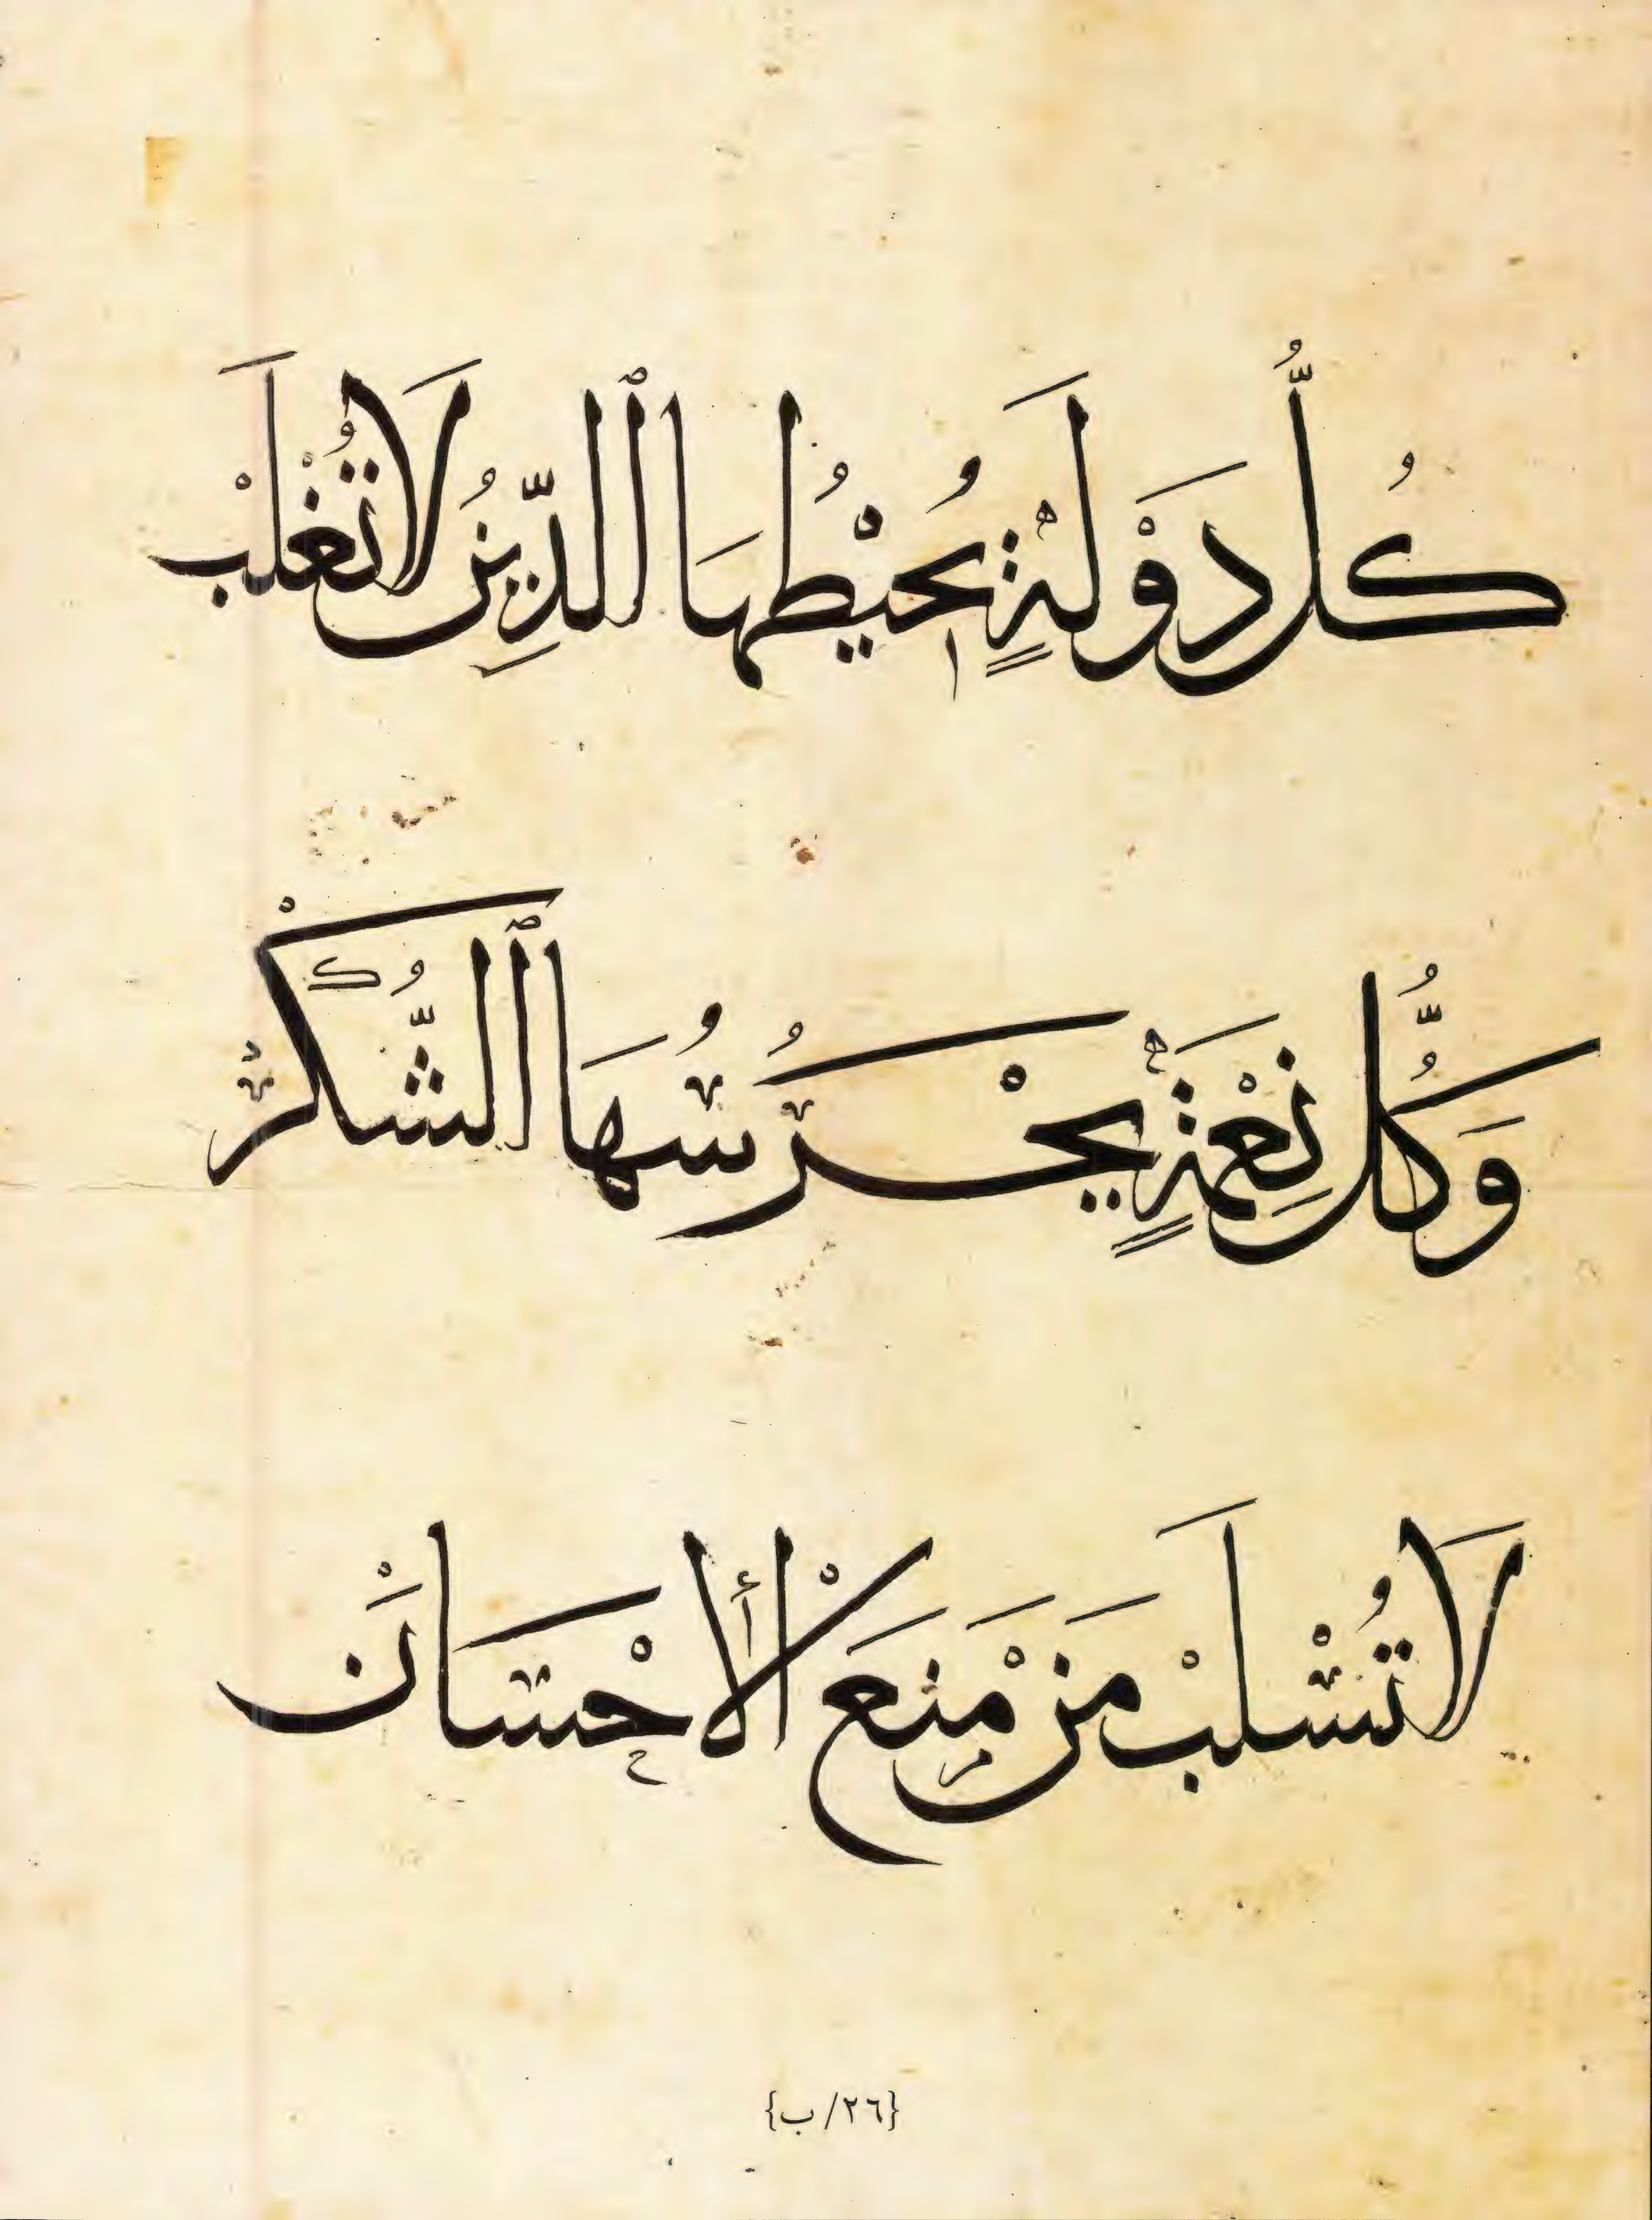 كُلُّ دَوْلَةٍ يُحِيْطُهَا ٱلدِّينُ لَا تُغْلَبْ
وَكُلُّ نِعْمَةٍ يَحْرُسُهَا ٱلشُّكْرْ
لَا تُسْلَبْ مَنْ مَنَعَ الْأِحْسَانَْ
{٢٦/ب}